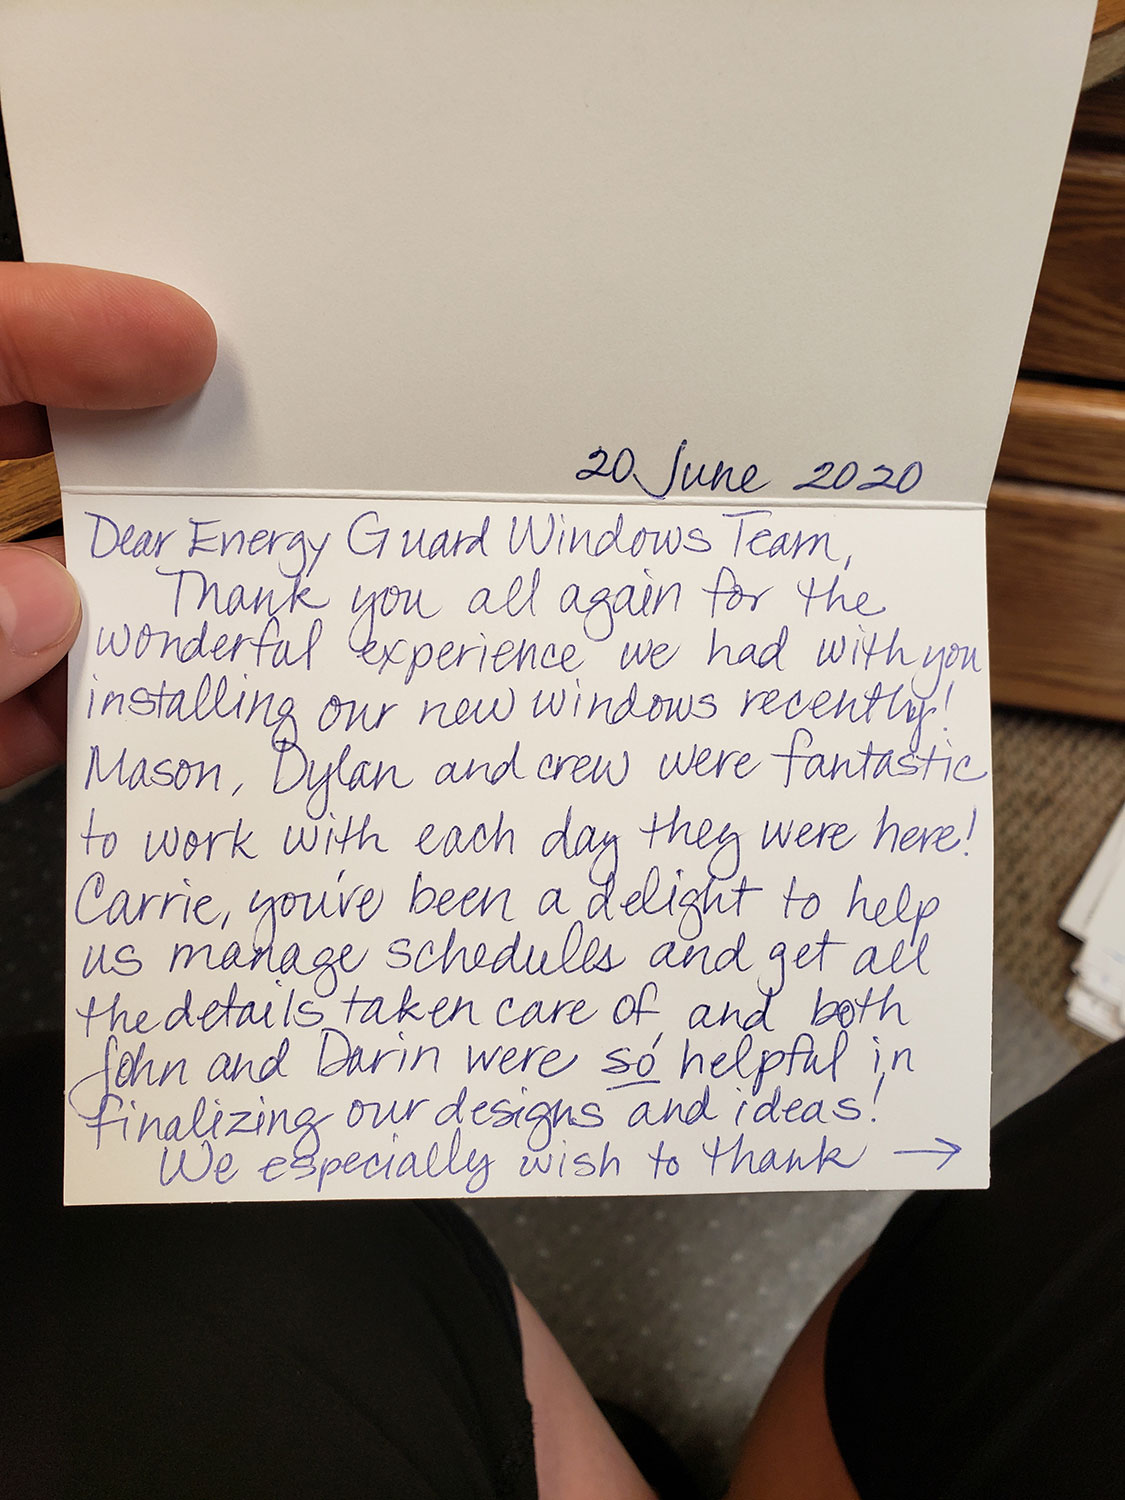 20 June 2020
Dear Energy Guard Windows Team,
Thank you all again for the
wonderful experience we had with you
installing our new windows recently!
Mason, Dylan and crew were fantastic
to work with each day they were here!
Carrie, you've been a delight to help
us manage schedules and get all
the details taken care of, and both
John and Darin were so helpful in
finalizing our designs and ideas!
We especially wish to thank →